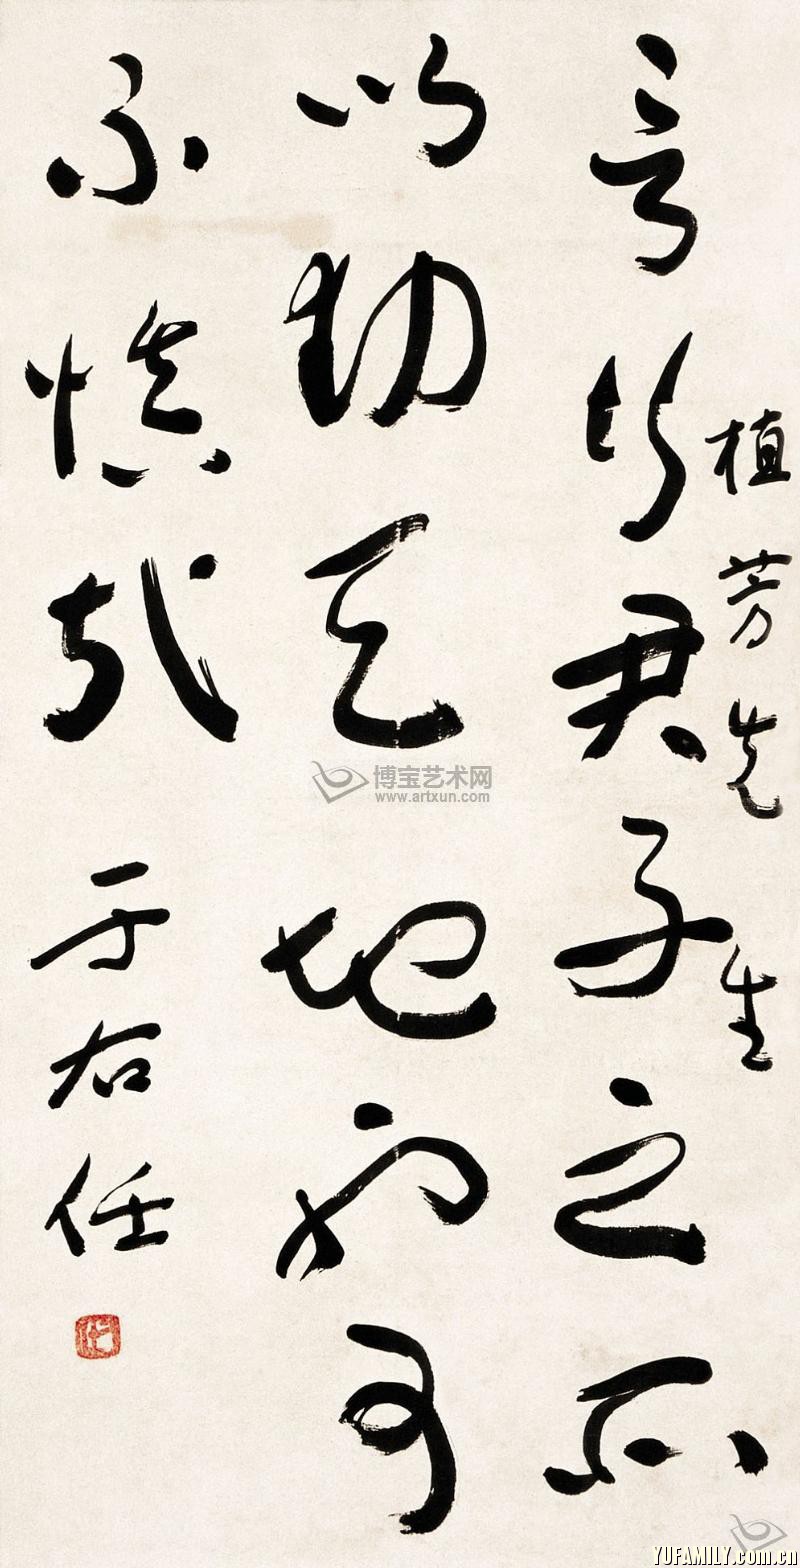 植芳先生
言行君子之所
以動天地也可
不慎哉
于右任
博宝艺术网
www.artxun.com
YUFAMILY.com.cn